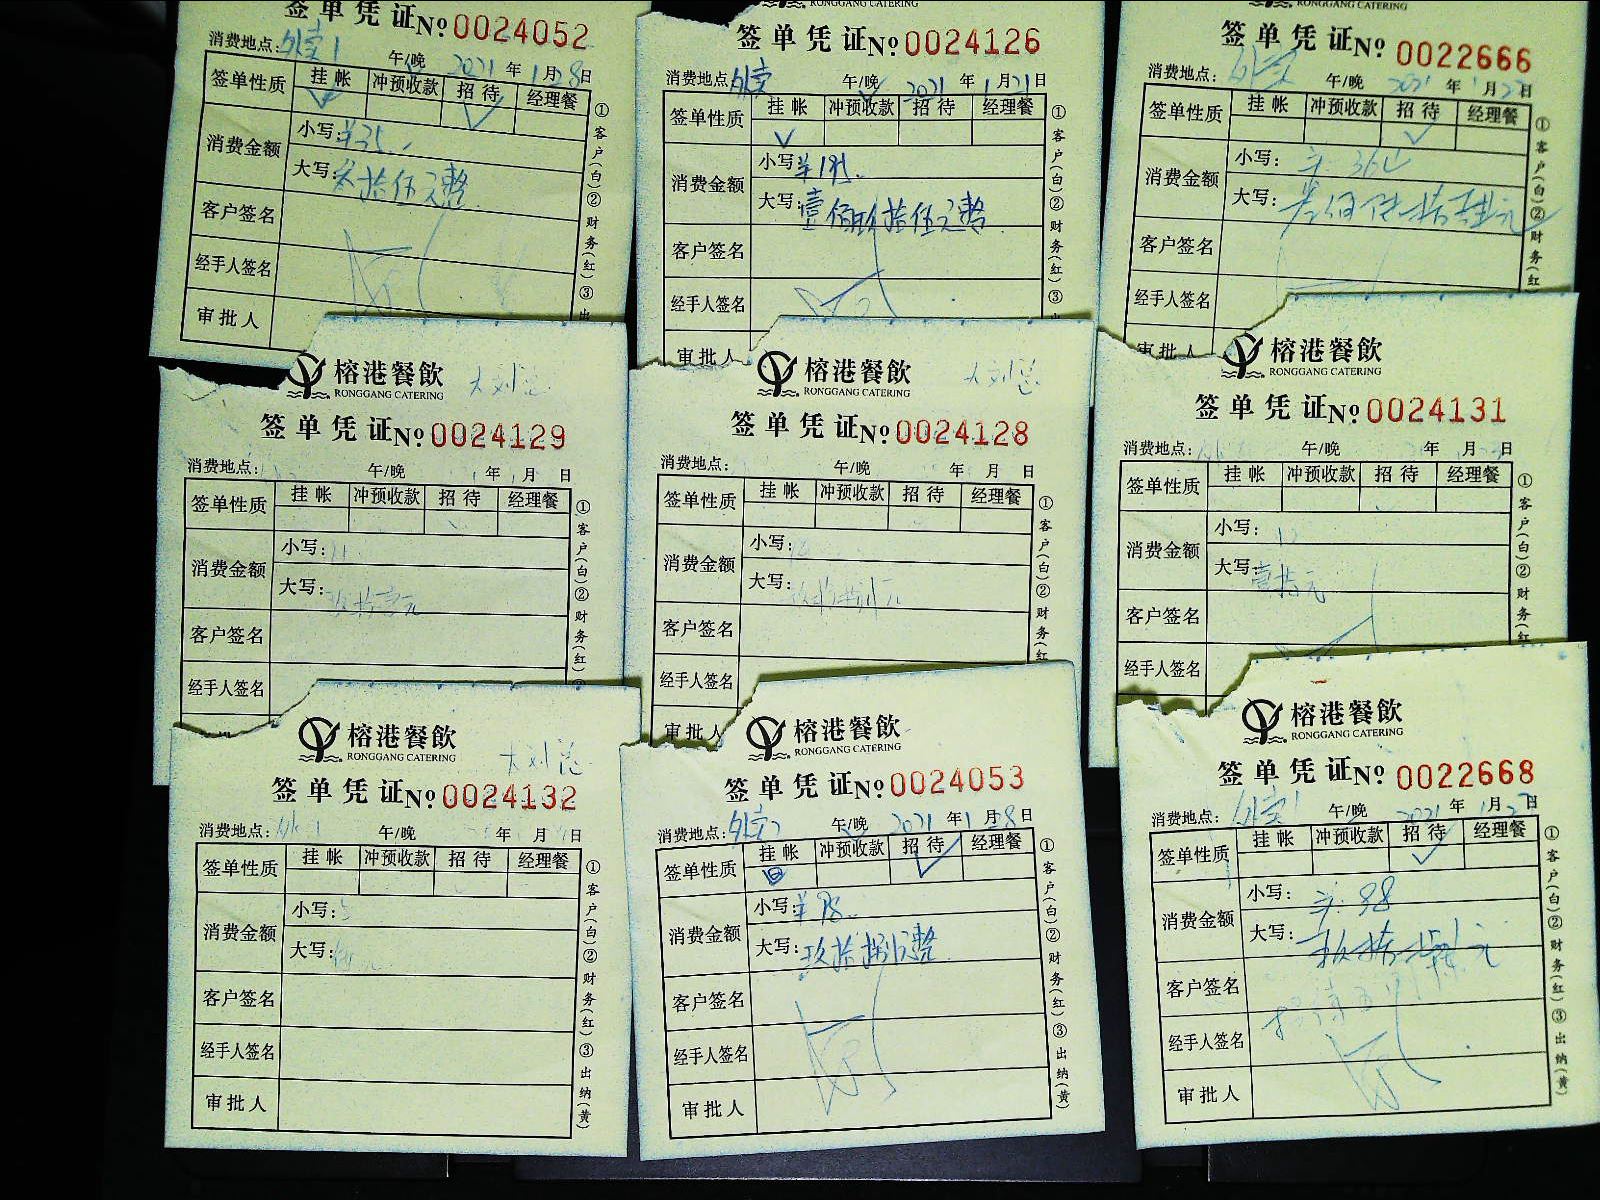 签单凭证 No 0024052
消费地点: 外卖1 午/晚 2021年1月28日
签单性质 挂帐 冲预收款 招待 经理餐
消费金额 小写: ¥35.-
大写: 叁拾伍元整
客户签名
经手人签名
审批人
①客户(白)②财务(红)③出
RONGGANG CATERING
签单凭证 No 0024126
消费地点: 外卖 午/晚 2021年1月21日
签单性质 挂帐 冲预收款 招待 经理餐
消费金额 小写: ¥195.
大写: 壹佰玖拾伍元整
客户签名
经手人签名
审批人
①客户(白)②财务(红)③
RONGGANG CATERING
签单凭证 No 0022666
消费地点: 午/晚 2021年1月27日
签单性质 挂帐 冲预收款 招待 经理餐
消费金额 小写:
大写:
客户签名
经手人签名
审批人
①客户(白)②财务(红
榕港餐飲 大刘总
RONGGANG CATERING
签单凭证 No 0024129
消费地点: 午/晚 年 月 日
签单性质 挂帐 冲预收款 招待 经理餐
消费金额 小写:
大写:
客户签名
经手人签名
①客户(白)②财务(红)
榕港餐飲 大刘总
RONGGANG CATERING
签单凭证 No 0024128
消费地点: 午/晚 年 月 日
签单性质 挂帐 冲预收款 招待 经理餐
消费金额 小写:
大写: 玖拾捌元
客户签名
经手人签名
审批人
①客户(白)②财务(红
榕港餐飲
RONGGANG CATERING
签单凭证 No 0024131
消费地点: 午/晚 年 月 日
签单性质 挂帐 冲预收款 招待 经理餐
消费金额 小写:
大写: 壹拾元
客户签名
经手人签名
①客户(白)②财务(红
榕港餐飲 大刘总
RONGGANG CATERING
签单凭证 No 0024132
消费地点: 外 1 午/晚 年 月 日
签单性质 挂帐 冲预收款 招待 经理餐
消费金额 小写:
大写:
客户签名
经手人签名
审批人
①客户(白)②财务(红)③出纳(黄)
榕港餐飲
RONGGANG CATERING
签单凭证 No 0024053
消费地点: 外卖2 午/晚 2021年1月28日
签单性质 挂帐 冲预收款 招待 经理餐
消费金额 小写: ¥98.
大写: 玖拾捌元整
客户签名
经手人签名
审批人
①客户(白)②财务(红)③出纳(黄)
榕港餐飲
RONGGANG CATERING
签单凭证 No 0022668
消费地点: 外卖1 午/晚 2021年1月27日
签单性质 挂帐 冲预收款 招待 经理餐
消费金额 小写: ¥.98
大写: 玖拾捌元
客户签名
经手人签名
审批人
①客户(白)②财务(红)③出纳(黄)